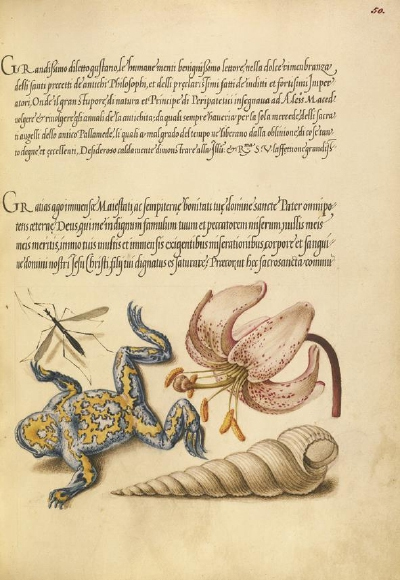 50.
GRandissimo diletto gustano, le humane menti benignissimo lettore, nella dolce rimembranza
delli santi precetti de antichi Philosophi, et delli preclarissimi fatti de inditti et fortissimi Imper-
atori, Onde il gran stupore di natura et Principe de Peripatetici insegnava ad Aless. Maced.
volgere & rivolgere gli annali de la antichita; da quali sempre haveria per la sola mercede delli sacra-
ti augelli dello antico Pallamede, li quali a malgrado del tempo ne liberano dalla oblivione, di cose tan-
to degne et eccellenti, Desideroso caldamente dimonstrare alla Ill. & R. S. V. l'affettione grandiss.
GRatias ago immensæ Maiestati, ac sempiternę bonitati tuę, domine sancte Pater omnipo-
tens ęterne Deus, qui me indignum famulum tuum et peccatorem miserum, nullis meis
meis meritis, immo tuis multis et immensis exigentibus miserationibus, corpore et sangui-
ne domini nostri Jesu Christi, filij tui dignatus es saturare, Præcor ut hęc sacrosancta commu-